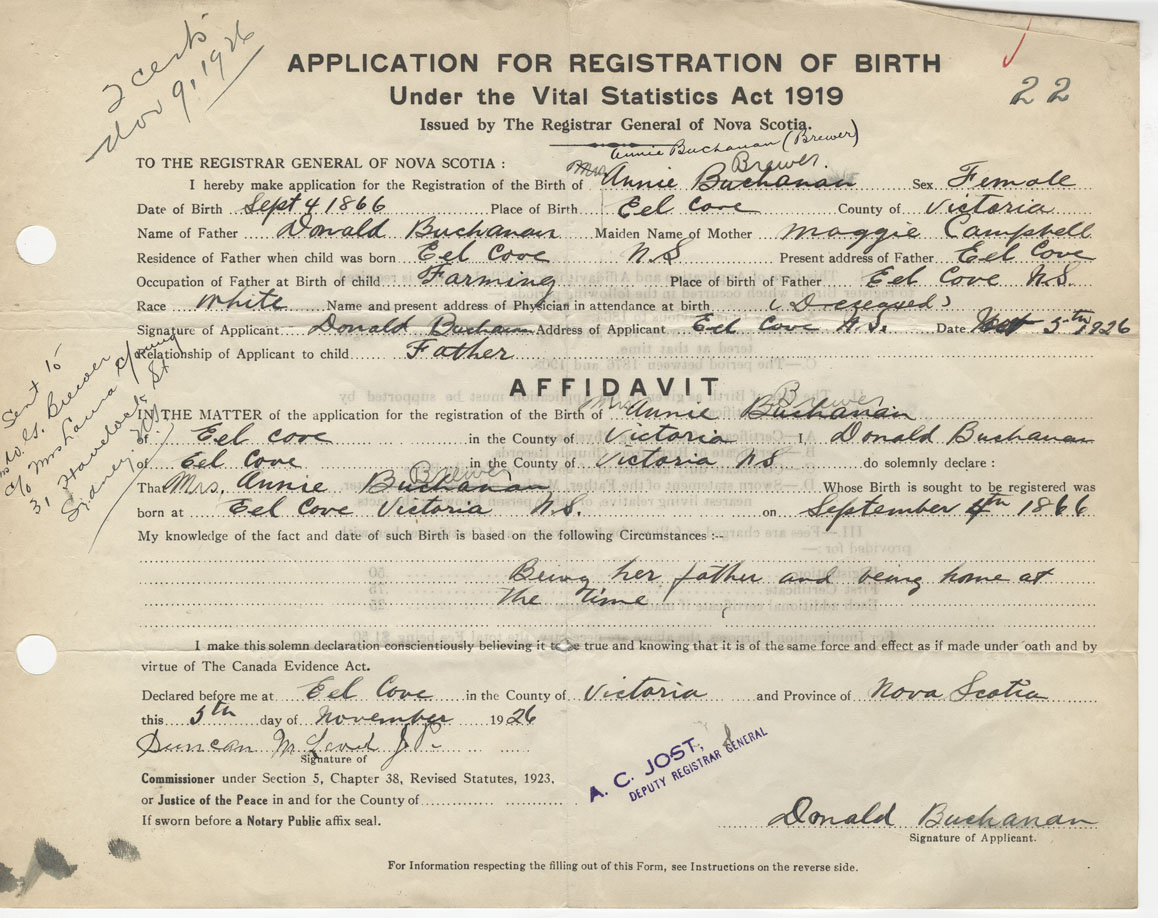 2 certs
Nov 9, 1926
22
APPLICATION FOR REGISTRATION OF BIRTH
Under the Vital Statistics Act 1919
Issued by The Registrar General of Nova Scotia.
Annie Buchanan (Brewer)
TO THE REGISTRAR GENERAL OF NOVA SCOTIA :
Brewer.
I hereby make application for the Registration of the Birth of Mrs Annie Buchanan Sex Female
Date of Birth Sept 4 1866 Place of Birth Eel Cove County of Victoria
Name of Father Donald Buchanan Maiden Name of Mother Maggie Campbell
Residence of Father when child was born Eel Cove N.S Present address of Father Eel Cove
Occupation of Father at Birth of child Farming Place of birth of Father Eel Cove N.S.
Race White Name and present address of Physician in attendance at birth (Deceased)
Signature of Applicant Donald Buchanan Address of Applicant Eel Cove N.S. Date 5th 1926
Relationship of Applicant to child Father
Sent to
W. G. Brewer
c/o Mrs Laura Young
31 Havelock St
Sydney.
AFFIDAVIT
Brewer
IN THE MATTER of the application for the registration of the Birth of Mrs Annie Buchanan
of Eel Cove in the County of Victoria I, Donald Buchanan
of Eel Cove in the County of Victoria N.S do solemnly declare :
Brewer
That Mrs. Annie Buchanan Whose Birth is sought to be registered was
born at Eel Cove Victoria N.S. on September 4th 1866
My knowledge of the fact and date of such Birth is based on the following Circumstances :--
Being her father and being home at
the time
I make this solemn declaration conscientiously believing it to be true and knowing that it is of the same force and effect as if made under oath and by
virtue of The Canada Evidence Act.
Declared before me at Eel Cove in the County of Victoria and Province of Nova Scotia
this 5th day of November 1926
Duncan McLeod J.P.
Signature of
Commissioner under Section 5, Chapter 38, Revised Statutes, 1923,
or Justice of the Peace in and for the County of
If sworn before a Notary Public affix seal.
A. C. JOST,
DEPUTY REGISTRAR GENERAL
Donald Buchanan
Signature of Applicant.
For Information respecting the filling out of this Form, see Instructions on the reverse side.